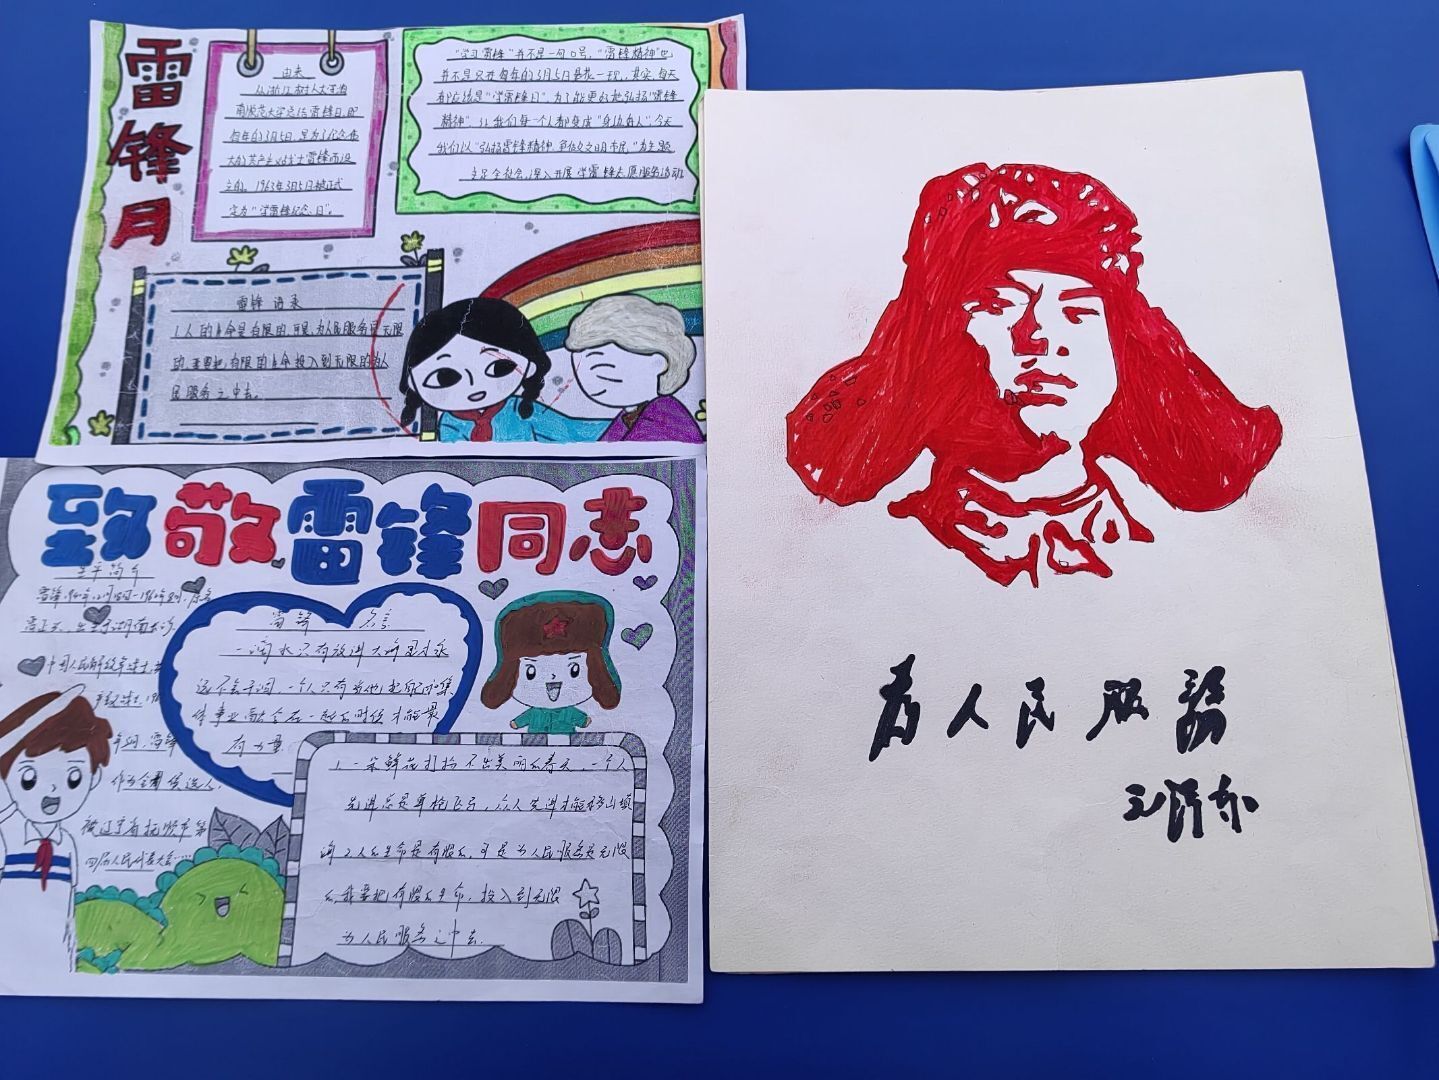 雷锋月
由来
每年的3月5日,是为了纪念伟
大的共产主义战士雷锋而设
立的。1963年3月5日被正式
定为“学雷锋纪念日”。
“学习雷锋”并不是一句口号,“雷锋精神”也
并不是只在每年的3月5日昙花一现,其实,每天
都应该是“学雷锋日”,为了能更好地弘扬“雷锋
精神”,让我们每一个人都变成“身边好人”,今天
我们以“弘扬雷锋精神,争做文明市民,”为主题
雷锋语录
1.人的生命是有限的,可是,为人民服务是无限
的,我要把有限的生命投入到无限的为人
民服务之中去。
致敬雷锋同志
生平简介
中国人民解放军战士,
年间,雷锋
作为全票候选人,
被辽宁省抚顺市第
四届人民代表大会……
雷锋名言
一滴水只有放进大海里才永
远不会干涸,一个人只有当他把自己和集
体事业融合在一起的时候才能最
有力量
1.一朵鲜花打扮不出美丽的春天,一个人
先进总是单枪匹马,众人先进才能移山填
海2.人的生命是有限的,可是为人民服务是无限
的,我要把有限的生命,投入到无限
为人民服务之中去.
为人民服务
毛泽东